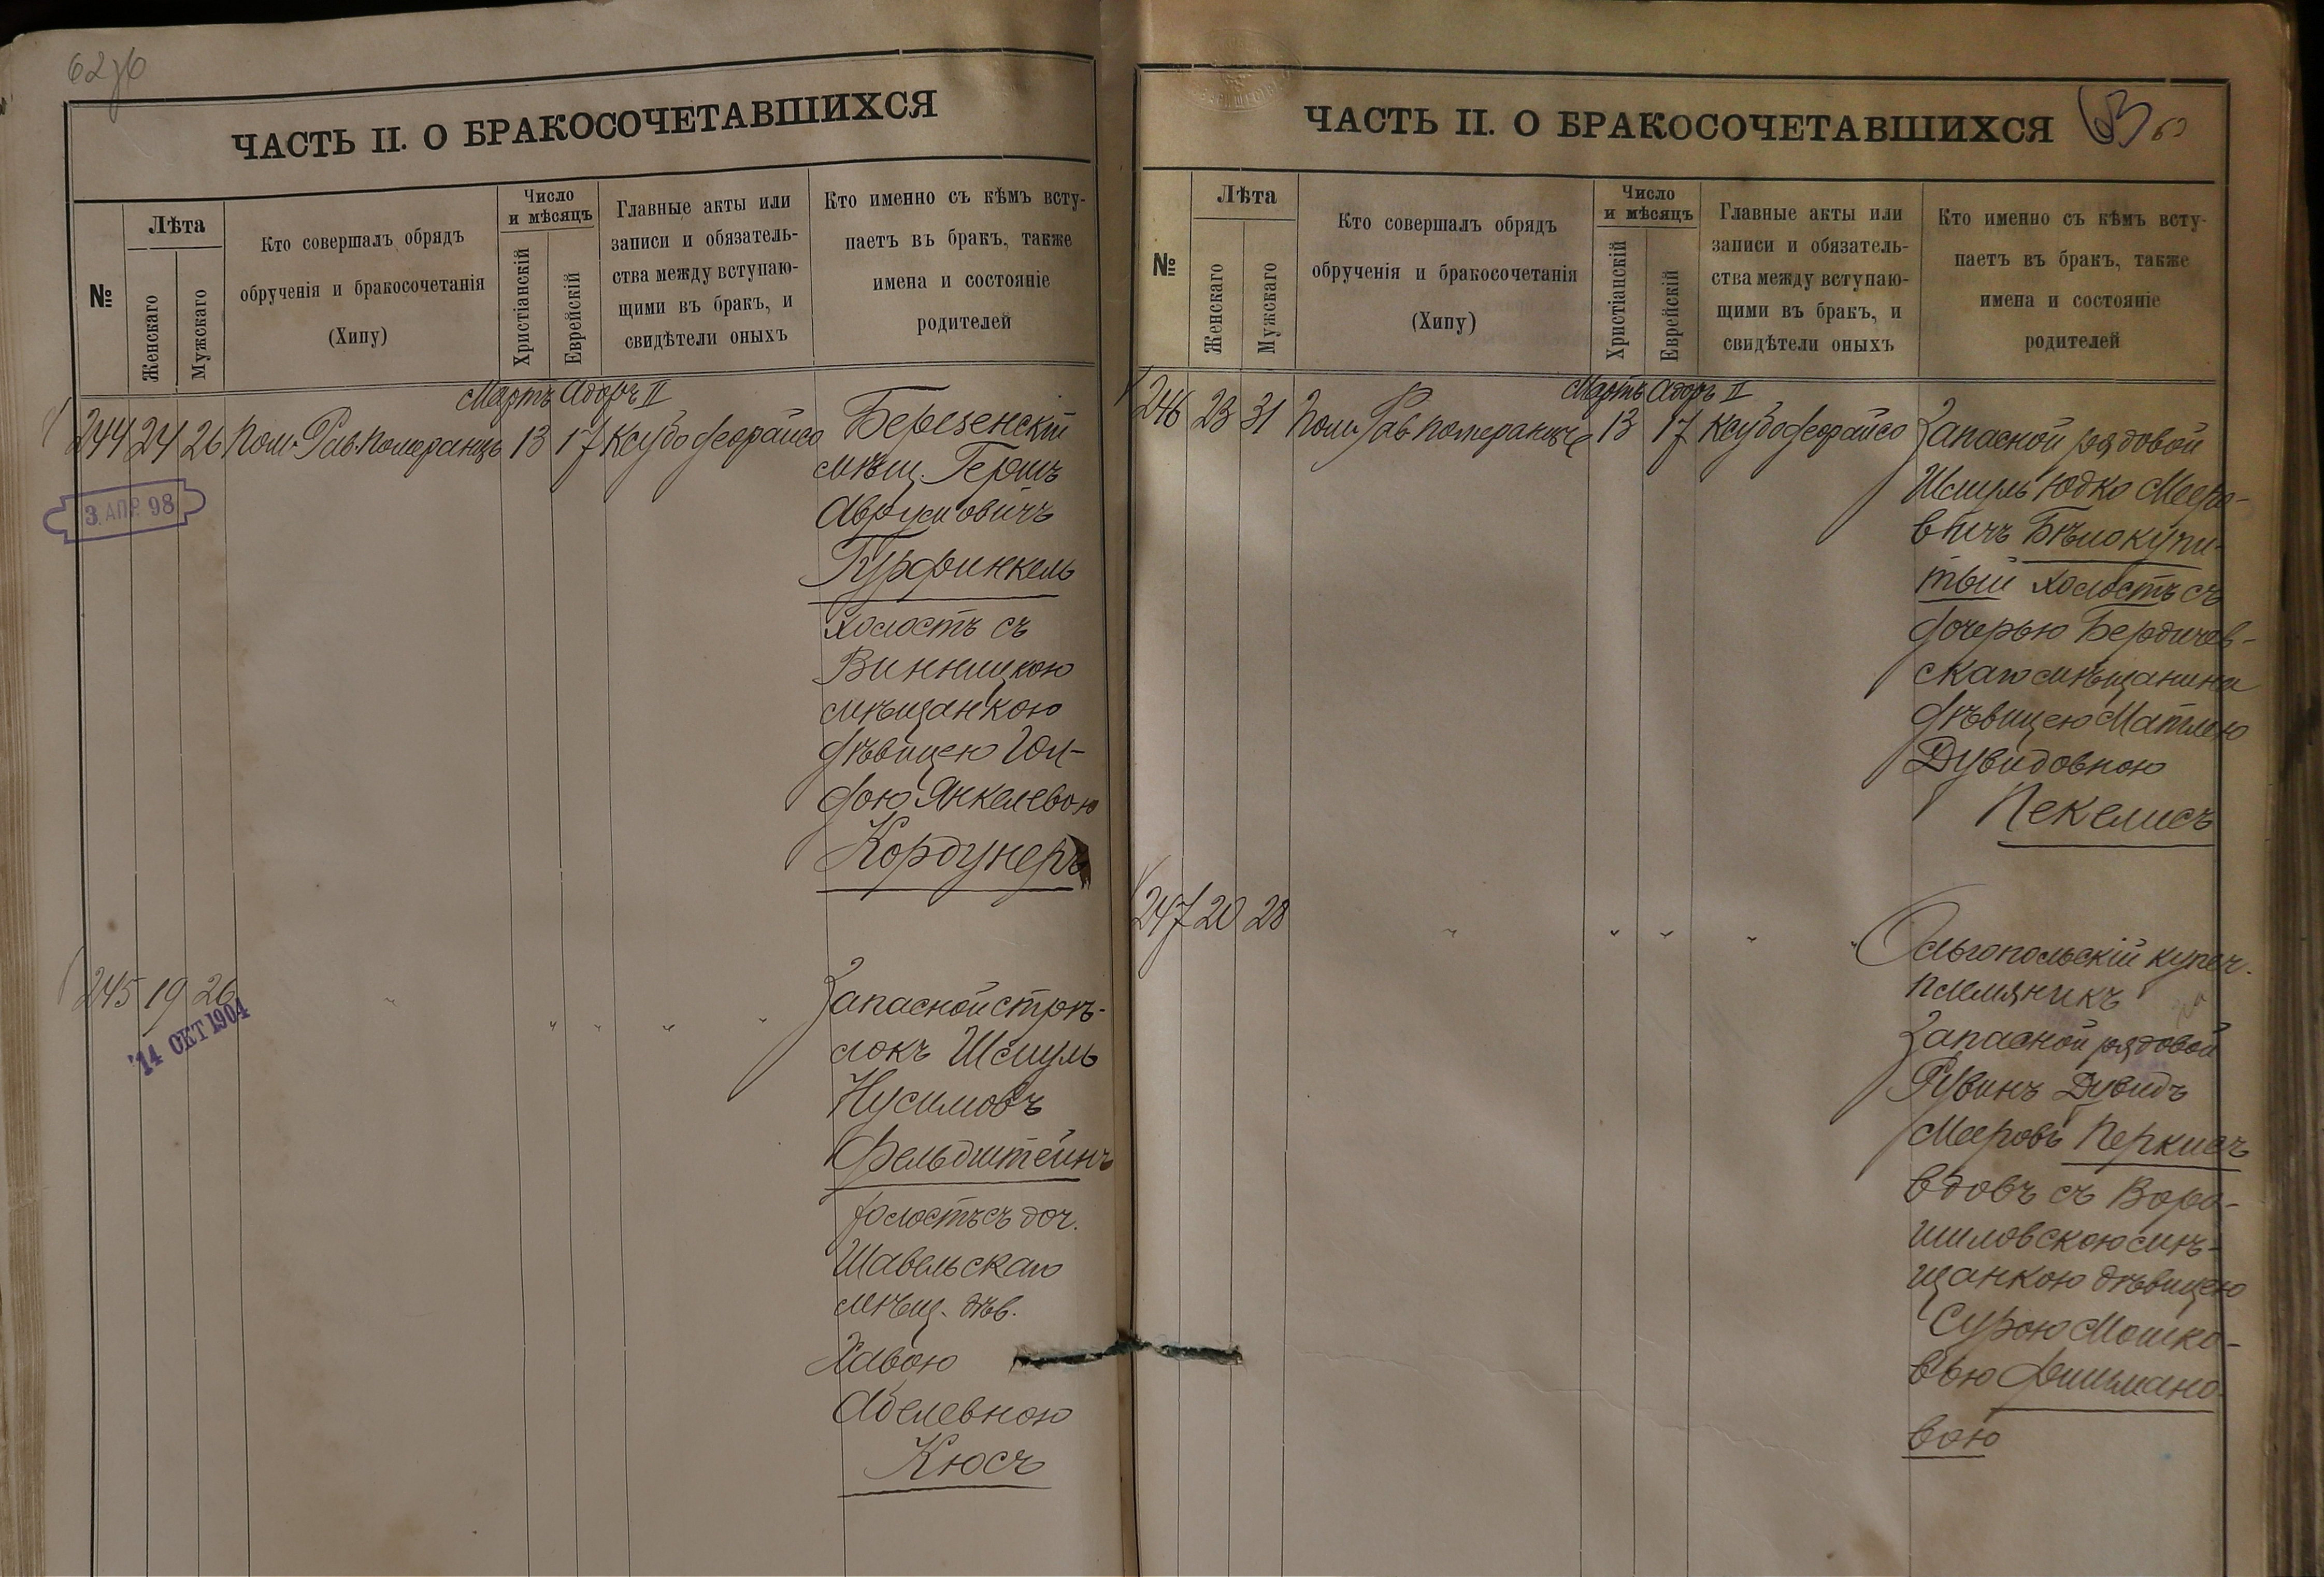 62об
ЧАСТЬ II. О БРАКОСОЧЕТАВШИХСЯ
№
Лѣта
Женскаго
Мужскаго
Кто совершалъ обрядъ
обрученія и бракосочетанія
(Хипу)
Число
и мѣсяцъ
Христіанскій
Еврейскій
Главные акты или
записи и обязатель-
ства между вступаю-
щими въ бракъ, и
свидѣтели оныхъ
Кто именно съ кѣмъ всту-
паетъ въ бракъ, также
имена и состояніе
родителей
Мартъ Адоръ II
244 24 26 Пом. Рав. Померанцъ 13 17 Ксубо деорайсо
3. АПР. 98
Березенскій
мѣщ. Гершъ
Аврумовичъ
Гурфинкель
холостъ съ
Винницкою
мѣщанкою
дѣвицею Гол-
дою Янкелевою
Кордунеръ
245 19 26 " " " " "
14 ОКТ 1904
Запасной стрѣ-
локъ Шмуль
Нусимовъ
Фельдштейнъ
холостъ съ доч.
Шавельскаго
мѣщ. дѣв.
Хавою
Абелевною
Кюсъ
ЧАСТЬ II. О БРАКОСОЧЕТАВШИХСЯ
63
63
№
Лѣта
Женскаго
Мужскаго
Кто совершалъ обрядъ
обрученія и бракосочетанія
(Хипу)
Число
и мѣсяцъ
Христіанскій
Еврейскій
Главные акты или
записи и обязатель-
ства между вступаю-
щими въ бракъ, и
свидѣтели оныхъ
Кто именно съ кѣмъ всту-
паетъ въ бракъ, также
имена и состояніе
родителей
Мартъ Адоръ II
246 23 31 Пом. Рав. Померанцъ 13 17 Ксубо деорайсо
Запасной рядовой
Шмуль Юдко Мееро-
вичъ Бѣлокупи-
тый холостъ съ
дочерью Бердичев-
скаго мѣщанина
дѣвицею Матлею
Дувидовною
Пекелисъ
247 20 28 " " " " "
Ольгопольскій купеч.
племяникъ
Запасной рядовой
Рувинъ Дувидъ
Мееровъ Перкисъ
вдовъ съ Воро-
шиловскою мѣ-
щанкою дѣвицею
Сурою Мошко-
вою Фишмано-
вою